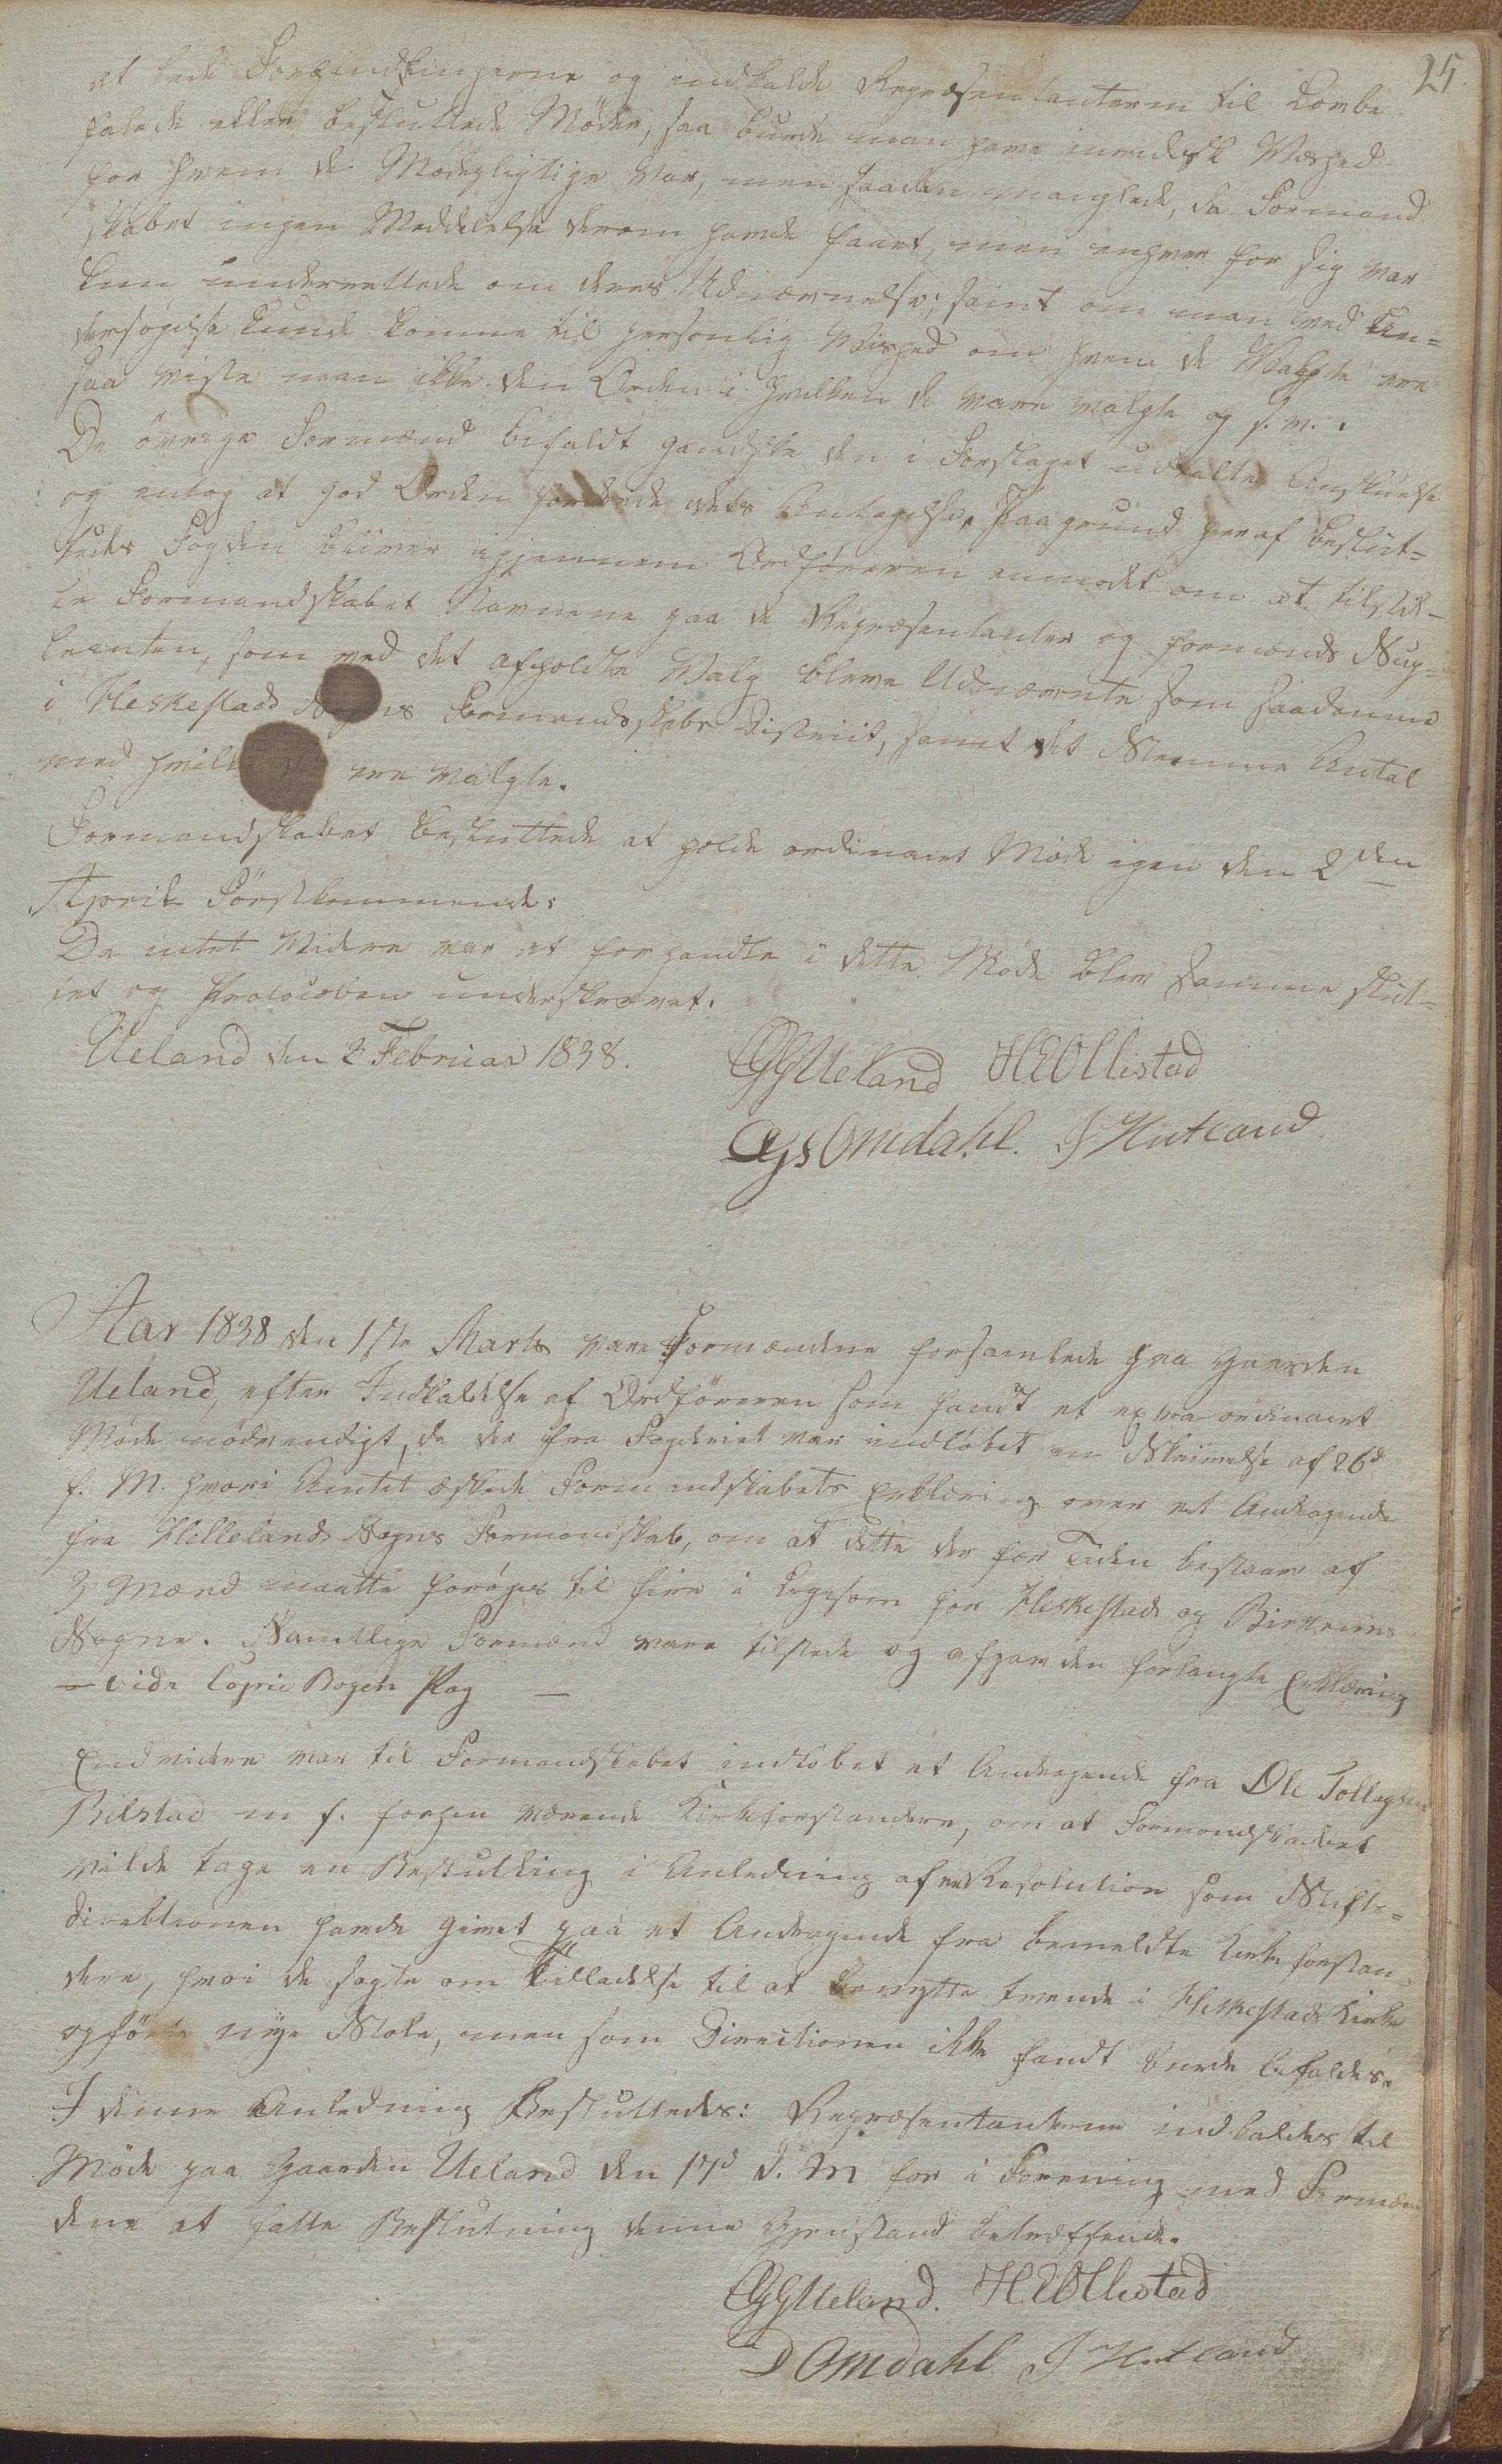 25.
at lede Forhandlingerne og indkalde Repræsentanterne til Lovbe
falede eller besluttede Møder, saa burde man have juridisk Vished
for hvem de Mødepligtige var, men saadan manglede, da Formand
skabet ingen Meddelelse derom havde faaet, men enhver for sig var
kun underrettede om deres Udnævnelse; samt om man ved Un=
dersøgelse kunde komme til personlig Vished om hvem de Valgte ere
saa viste man ikke den Orden i hvilken de vare valgte og s. v. .
De øvrige Formænd bifaldt gandske den i Forslaget udtalte Anskuelse
og antog at god Orden fordrede dets Antagelse, Paa grund heraf beslut=
tedes Fogden bliver igjennem Ordføreren anmodet om at tilstil-
le Formandskabet Navnene paa de Repræsentanter og formænds Sup=
leanter, som ved det afholdte Valg bleve Udnævnte som saadanne
i Heskestads Sogns Formandskabs District, samt det Stemme Antal
med hvilket de ere valgte.
Formandskabet besluttede at holde ordinairt Møde igen den 2den
April Førstkommende.
Da intet Videre var at forhandle i dette Møde blev samme slut=
tet og Protocolen underskrevet.
Ueland den 2 Februar 1838.
OGUeland HEOllestad
OGSOmdahl. J Hutland
Aar 1838 den 1ste Marts vare Formændene forsamlede paa Gaarden
Ueland, efter Indkaldelse af Ordføreren som fandt et extraordinairt
Møde nödvendigt, da der fra Fogderiet var indløbet en Skrivelse af 26d
f. M. hvori Amtet æskede Formandskabets Erklæring over et Andragende
fra Hellelands Sogns Formandskab, om at dette der for Tiden bestaar af
3 Mænd maatte forøges til fire i Ligesom for Heskestads og Birkrems
Sogne. Samtlige Formænd vare tilstede og afgav den forlangte Erklæring
— vide Copie Bogen Pag —
Endvidere var til Formandskabet indløbet et Andragende fra Ole Tollagsen
Bilstad m f. forhen værende Kirkeforstandere, om at Formandskabet
vilde tage en Beslutning i Anledning af en Resolution som Stifts=
direktionen havde givet paa et Andragende fra bemeldte Kirkeforstan=
dere, hvori de søgte om Tilladelse til at benytte trende i Heskestads Kirke
opførte nye Stole, men som Directionen ikke fandt burde bifaldes.
I denne Anledning Besluttedes: Repræsentanterne indkaldes til
Møde paa Gaarden Ueland den 17d d. M for i Forening med Formæn
dene at fatte Beslutning denne Gjenstand betræffende.
OGUeland. HEOllestad
D Omdahl J Hutland